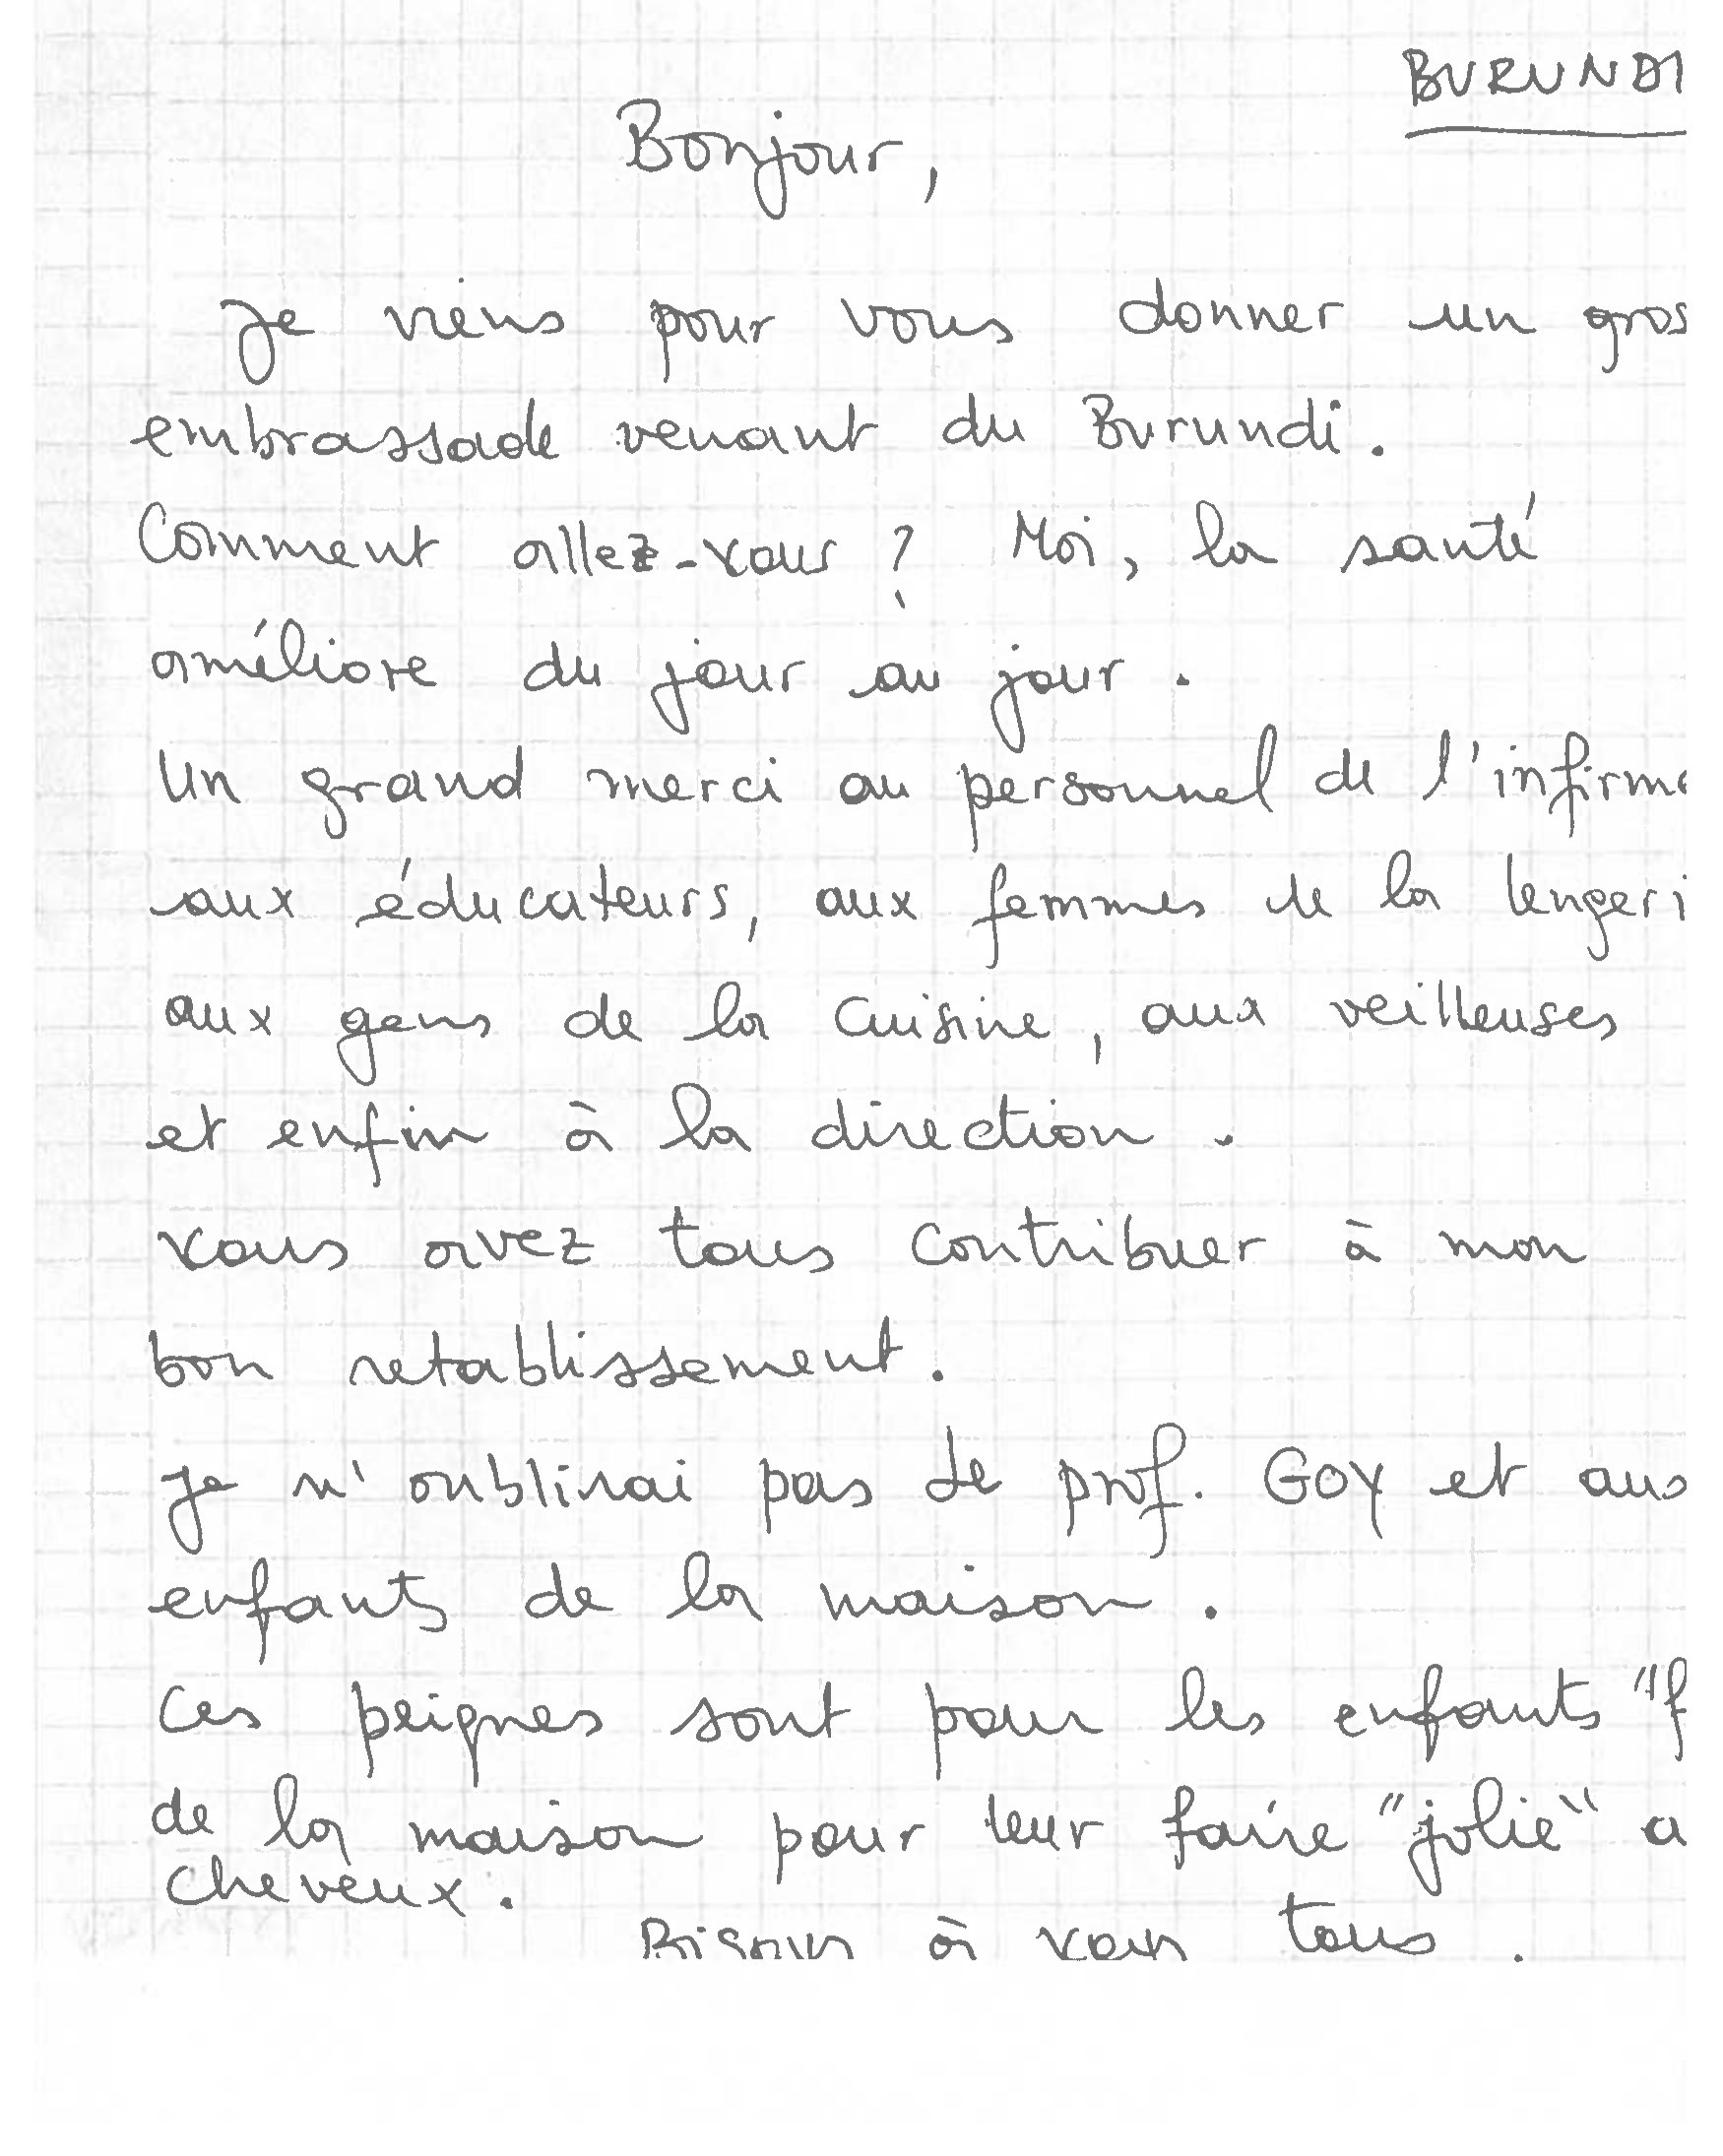 BURUNDI
Bonjour,
Je viens pour vous donner un gros
embrassade venant du Burundi.
Comment allez-vous ? Moi, la santé
améliore du jour au jour.
Un grand merci au personnel de l'infirme
aux éducateurs, aux femmes de la lengeri
aux gens de la cuisine, aux veilleuses
et enfin à la direction.
Vous avez tous contribuer à mon
bon retablissement.
Je n'oublirai pas le prof. GOY et aus
enfants de la maison.
Ces peignes sont pour les enfants "f
de la maison pour leur faire "jolie" a
cheveux.
Bisous à vous tous.